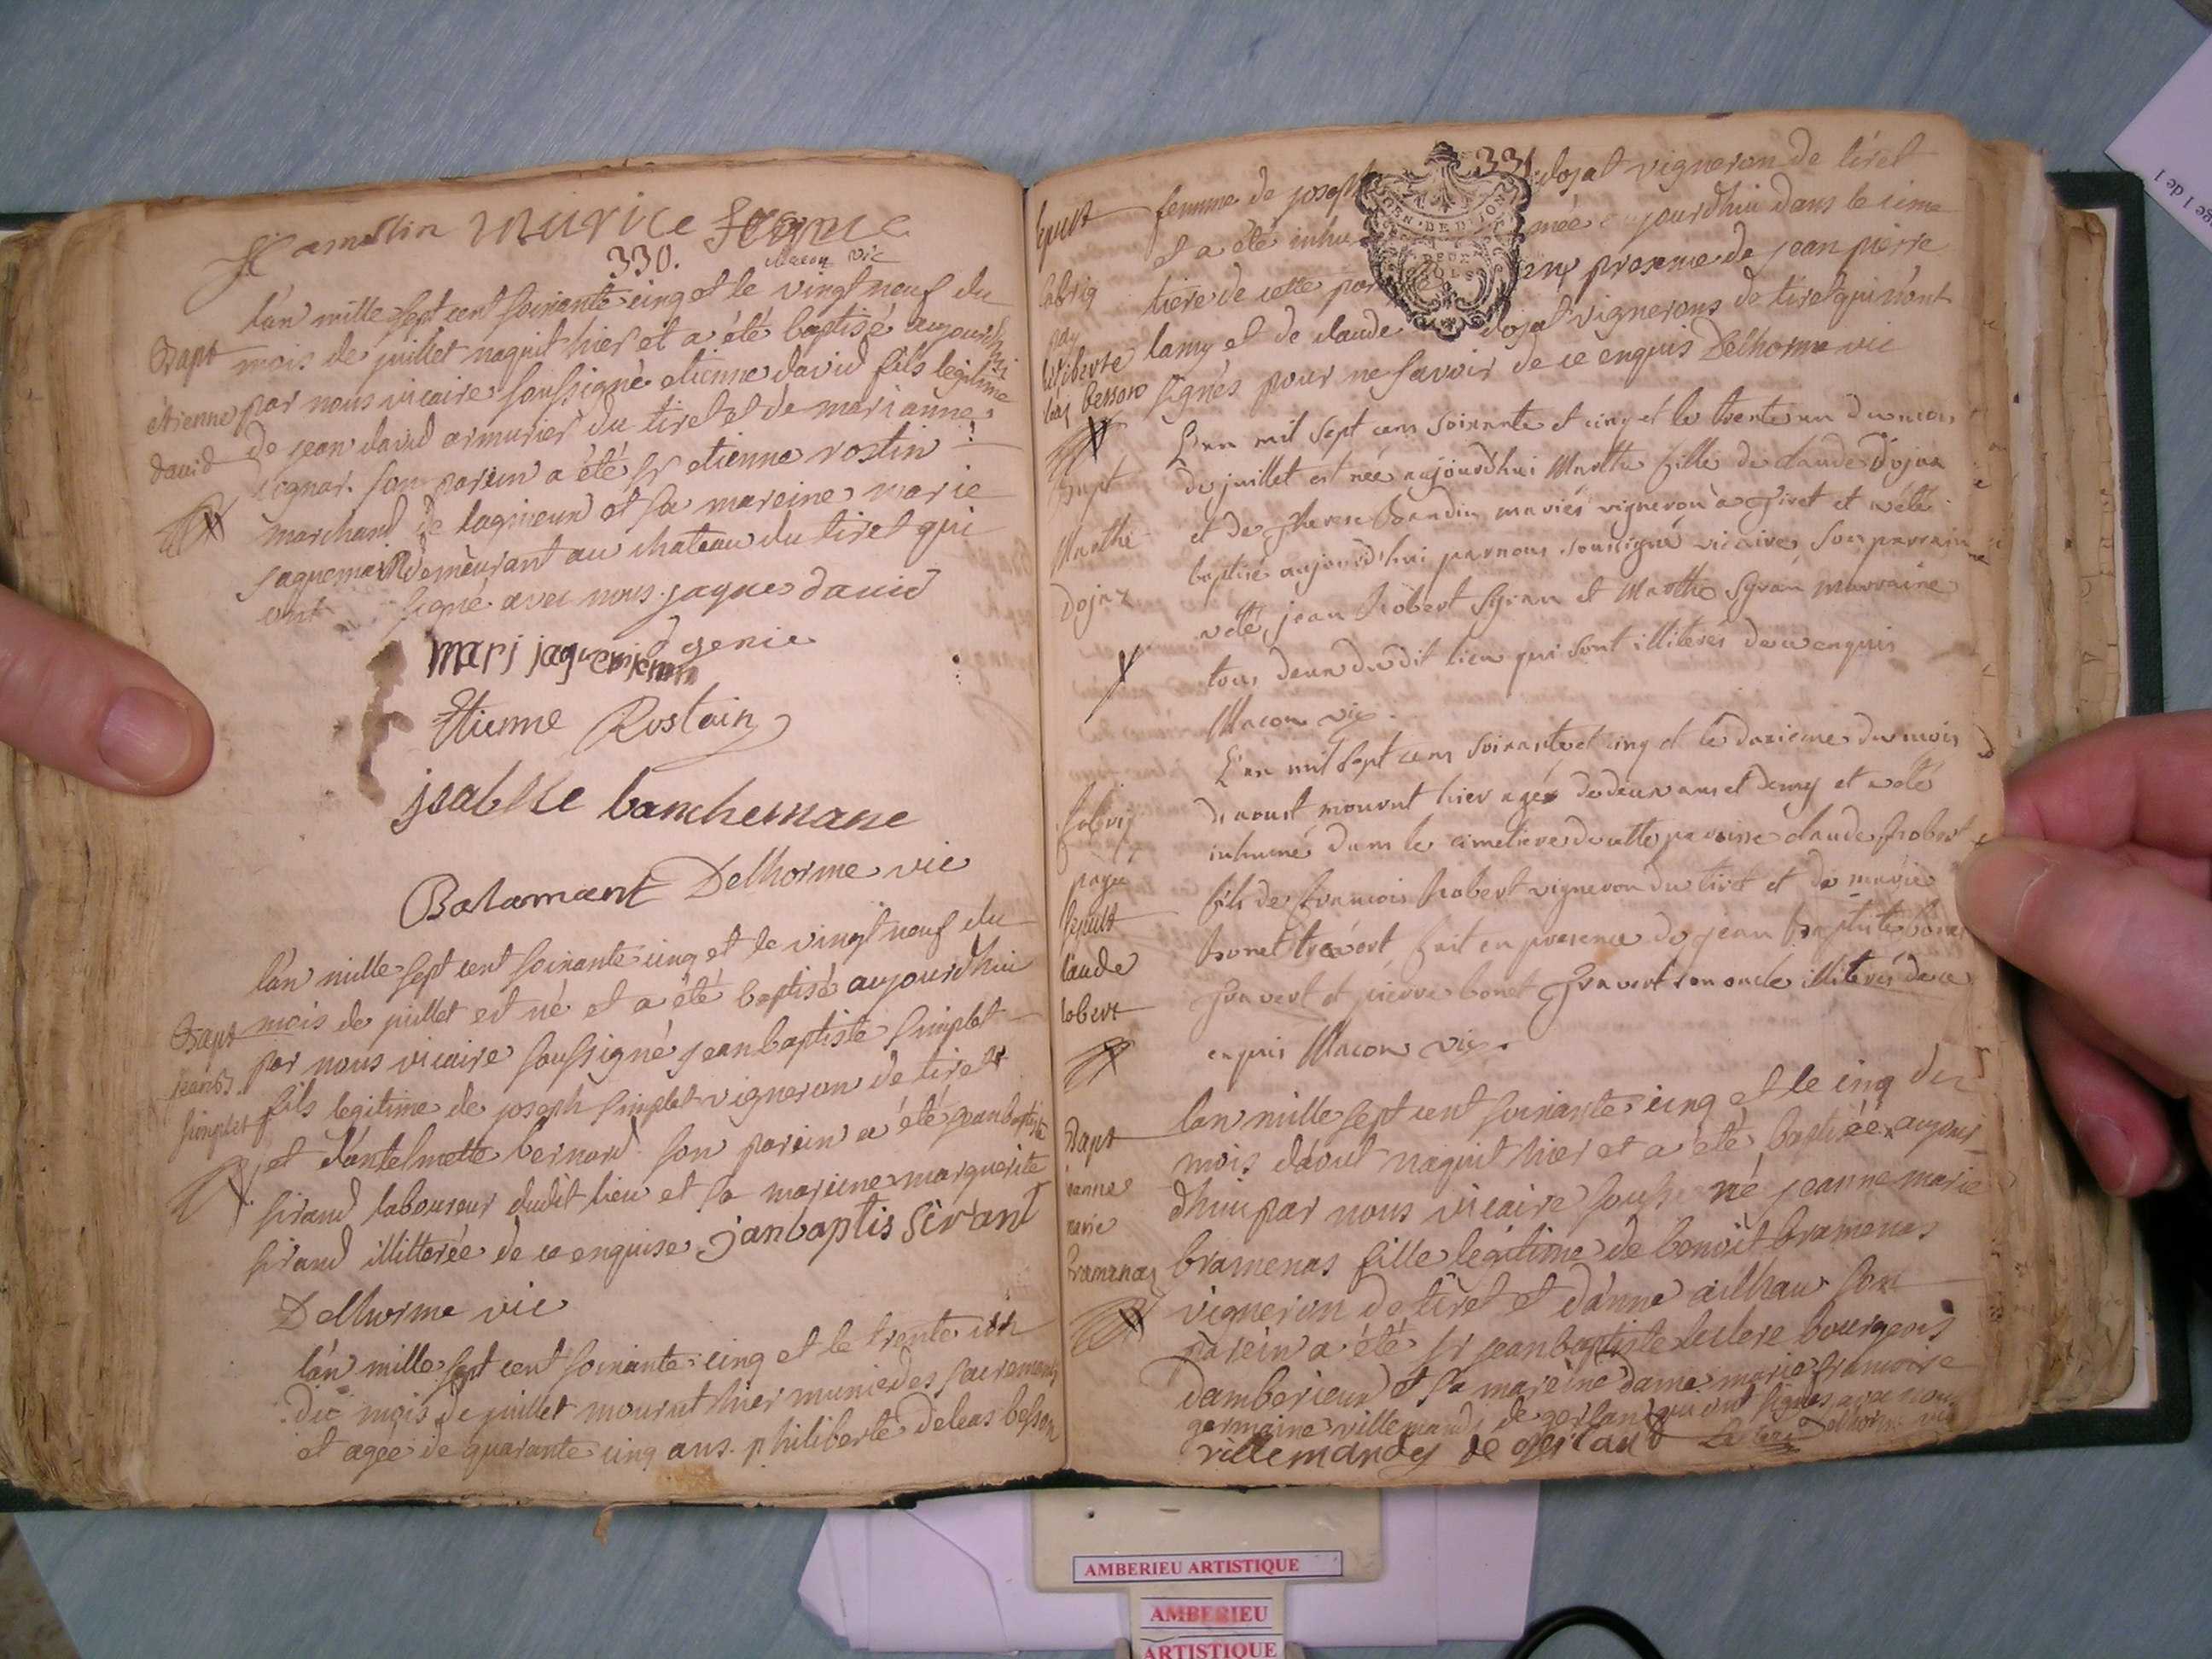 hamelin murice
330. Macon vic
l'an mille sept cent soixante cinq et le vingt neuf du
Bapt mois de juillet naquit hier et a été baptisé aujourdhui
étienne par nous vicaire soussigné etienne david fils legitime
david de jean david armurier du tiret et de marianne
signar. son parein a été sr etienne rostin
marchand de lagnieux et sa mareine marie
jaquemain demeurant au chateau du tiret qui
ont signé avec nous. jaque david
marj jaquemiemm
Etienne Rostain
jsabelle banchemane
Balamant Delhorme vic
l'an mille sept cent soixante cinq et le vingt neuf du
Bapt mois de juillet est né et a été baptisé aujourdhui
jean b. par nous vicaire soussigné jean baptiste simplet
simplet fils legitime de joseph simplet vigneron de tiret
et d'antelmette bernard. son parein a été jean baptiste
sirand laboureur dudit lieu et sa mareine marguerite
sirand illitterée de ce enquise janbaptis sirant
Delhorme vic
l'an mille sept cent soixante cinq et le trente un
du mois de juillet mourut hier munie des sacremens
et agée de quarante cinq ans. philiberte deleas besson
331.
GEN. DE DIJON
femme de joseph dojat vigneron de tiret
et a été inhumée aujourdhui dans le cime
tiere de cette par en presence de jean pierre
lamy et de claude dojat vignerons de tiret qui n'ont
signés pour ne savoir de ce enquis Delhorme vic
L'an mil sept cens soixante et cinq et le trente un du mois
Bapt de juillet est née aujourd'hui Marthe fille de claude Dojaz
Marthe et de therese Bandin mariés vigneron a Tiret et a été
Dojaz baptisé aujourd'hui par nous soussigné vicaire, son parrain
a été jean Robert Syran et Marthe Syran marraine
tous deux dudit lieu qui sont illiterés de ce enquis
Macon vic.
L'an mil sept cens soixante et cinq et le deuxieme du mois
d'aoust mourut hier agé de deux ans et demy et a été
inhumé dans le cimetiere de cette paroisse claude Robert
page
sepult fils de francois Robert vigneron du tiret et de marie
claude bonet travert, fait en presence de jean baptiste bonet
Robert travert et pierre bonet travert son oncle illiterés de ce
enquis Macon vic.
lan mille sept cent soixante cinq et le cinq du
Bapt mois d'aout naquit hier et a été baptisée aujour
jeanne dhui par nous vicaire sousi né jeanne marie
marie bramenas fille legitime de benoit bramenas
bramenas vigneron de tiret et d'anne ailhau son
parein a été sr jean baptiste leclerc bourgeois
damberieux et sa mareine dame marie francoise
germaine villemandy de gerland qui ont signés avec nous
villemandy de gerland Delhorme vic
AMBERIEU ARTISTIQUE
AMBERIEU
ARTISTIQUE